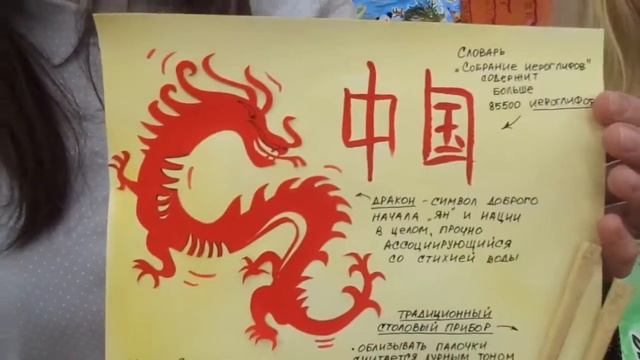 СЛОВАРЬ
„СОБРАНИЕ ИЕРОГЛИФОВ"
СОДЕРЖИТ
БОЛЬШЕ
85500 ИЕРОГЛИФОВ
中国
ДРАКОН – СИМВОЛ ДОБРОГО
НАЧАЛА „ЯН" И НАЦИИ
В ЦЕЛОМ, ПРОЧНО
АССОЦИИРУЮЩИЙСЯ
СО СТИХИЕЙ ВОДЫ
ТРАДИЦИОННЫЙ
СТОЛОВЫЙ ПРИБОР
• ОБЛИЗЫВАТЬ ПАЛОЧКИ
СЧИТАЕТСЯ ДУРНЫМ ТОНОМ